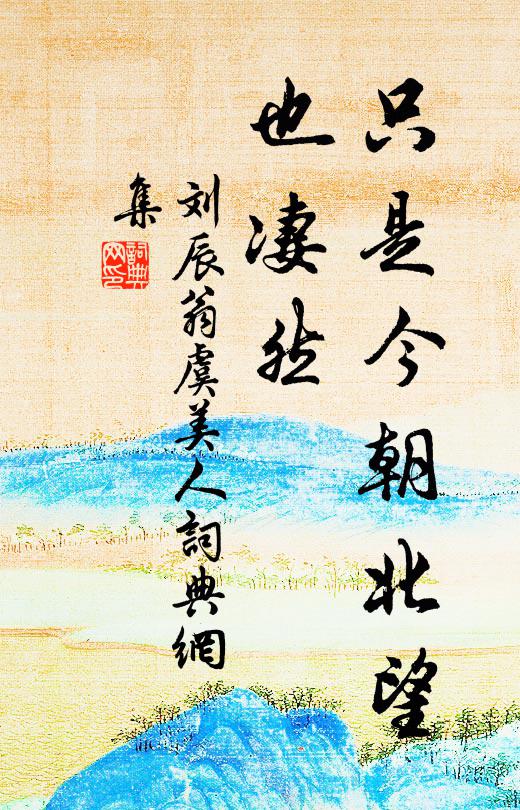 只是今朝北望
也凄然
刘辰翁虞美人詞典網
集
詞典
网印